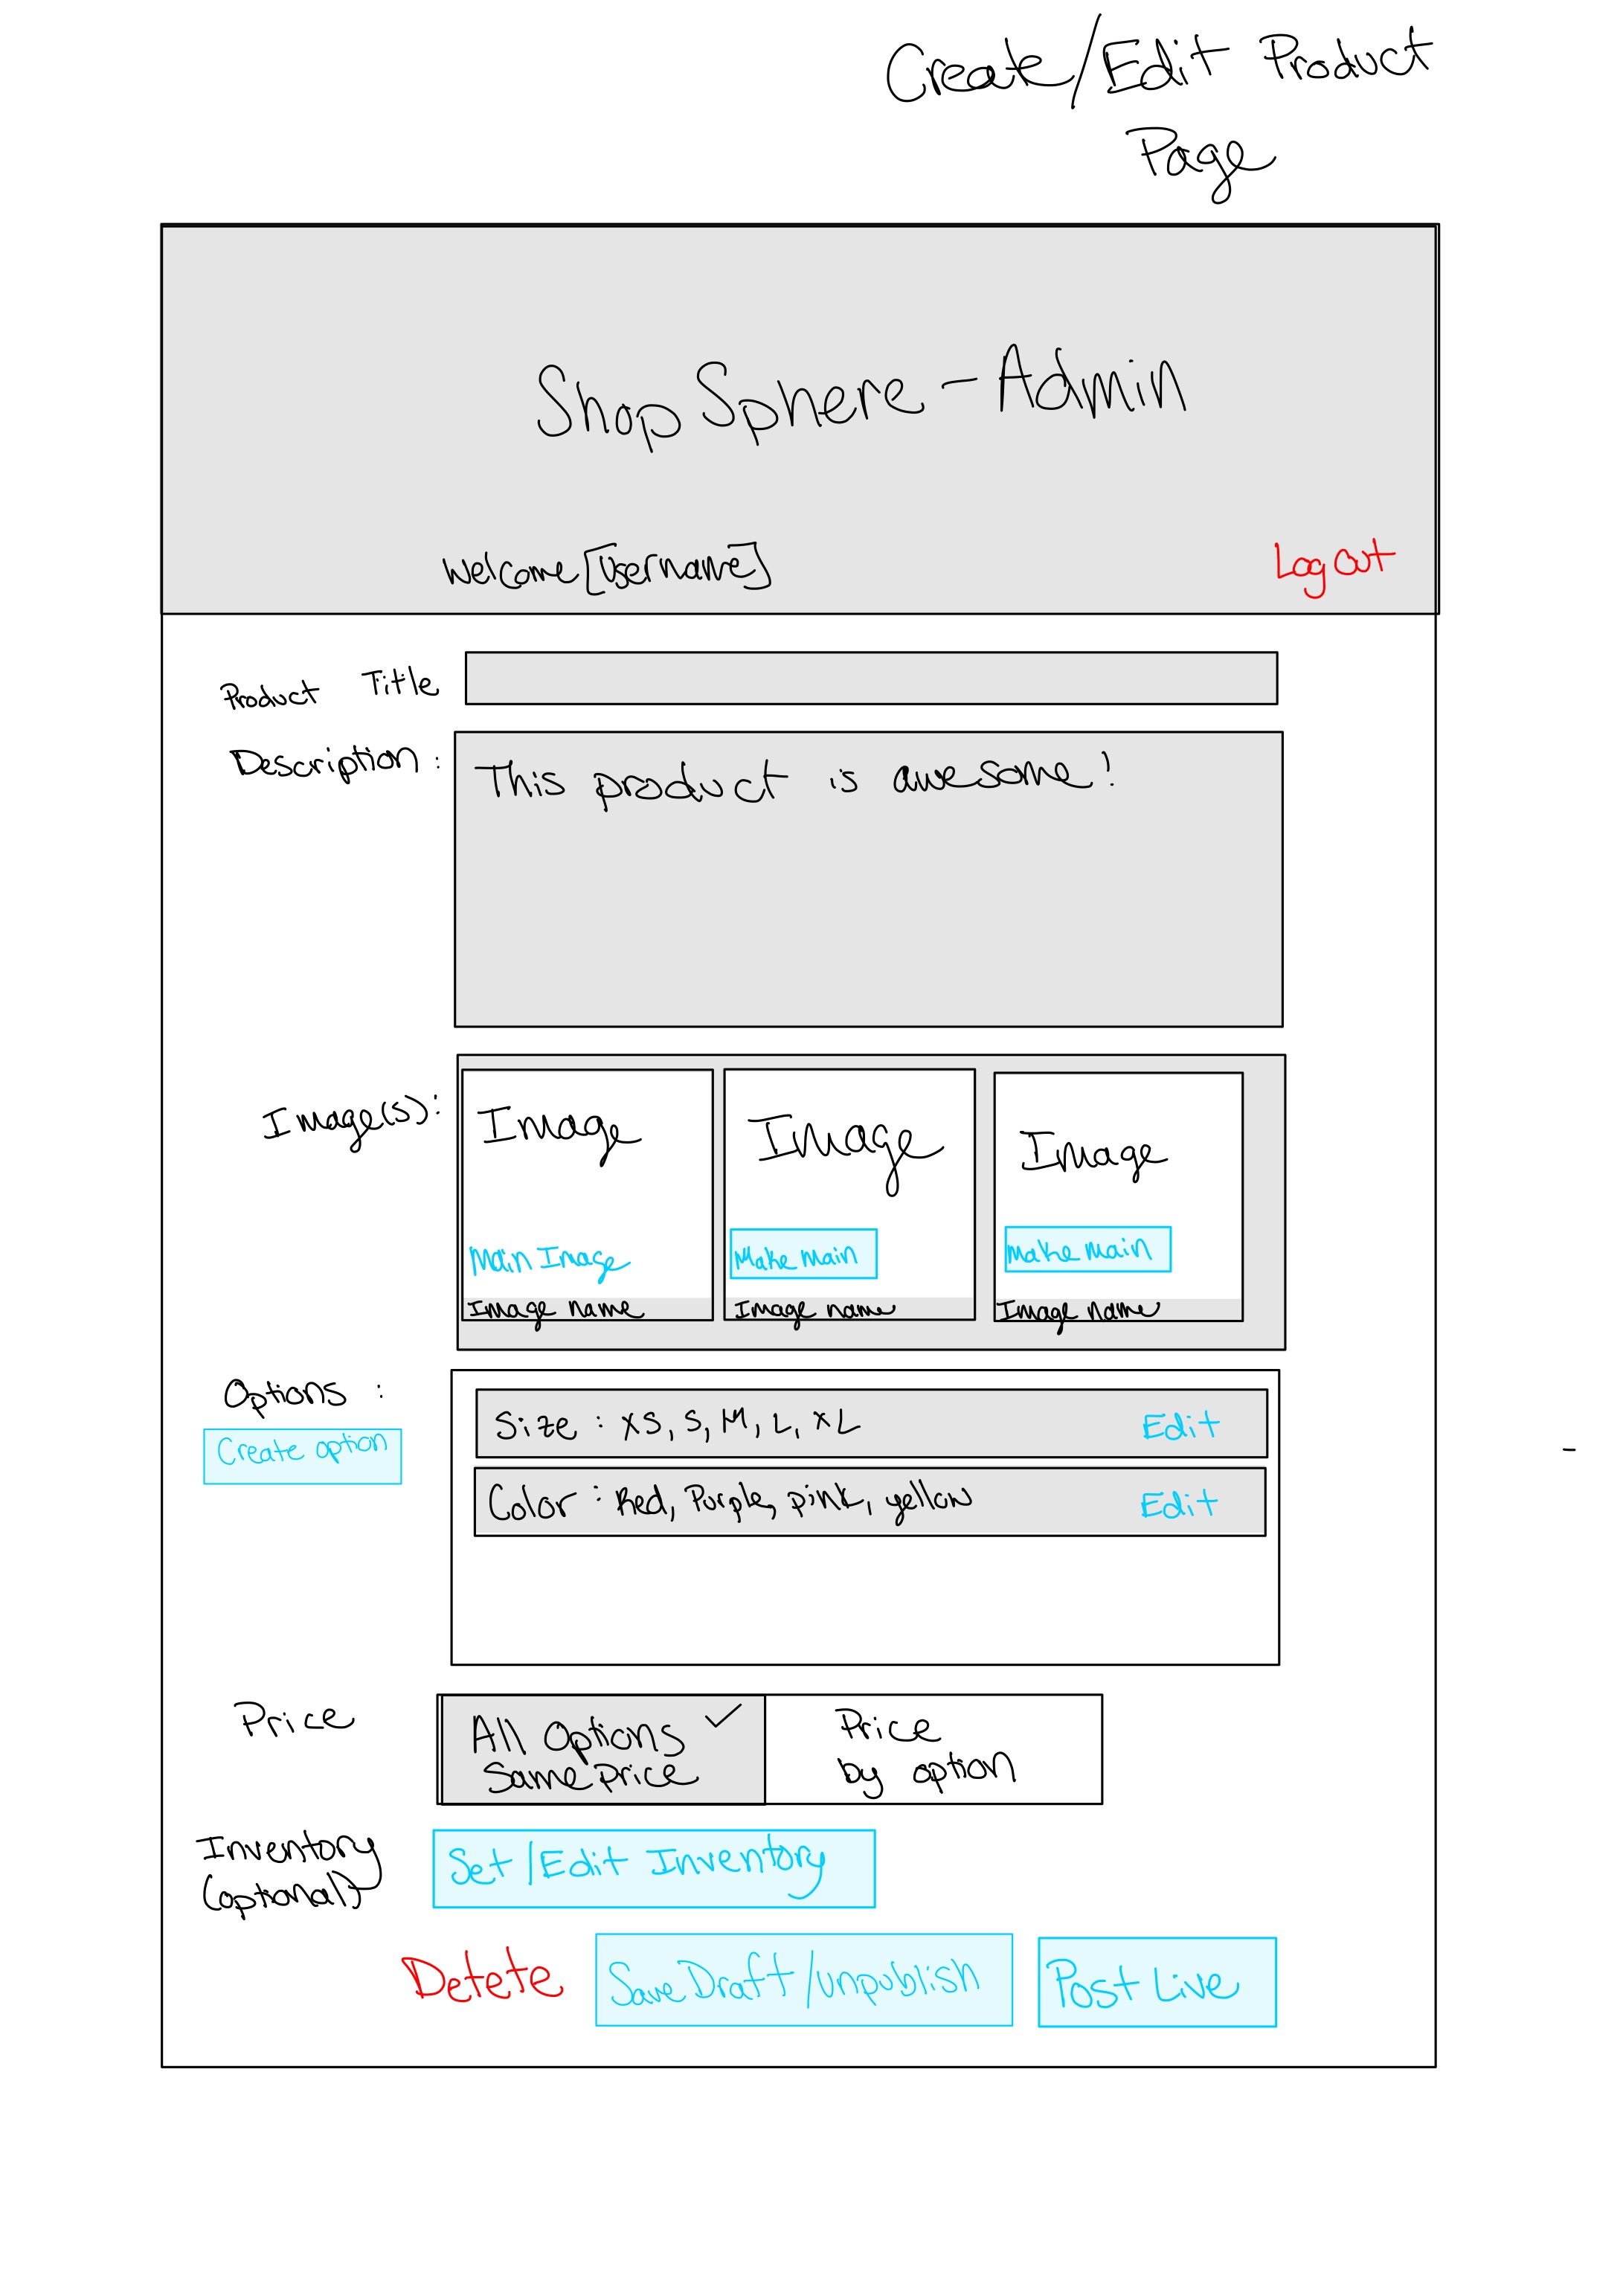 Create/Edit Product
Page
ShopSphere-Admin
Welcome[Username]
Log Out
Product Title
Description:
This product is awesome!
Image(s):
Image
Image
Image
Main Image
Make main
Make main
Image name
Image name
Image name
Options :
Create option
Size : XS, S, M, L, XL
Edit
Color : Red, Purple, pink, yellow
Edit
Price
All Options ✓
Same Price
Price
by option
Inventory
(optional)
Set/Edit Inventory
Detete
Save Draft/unpublish
Post Live